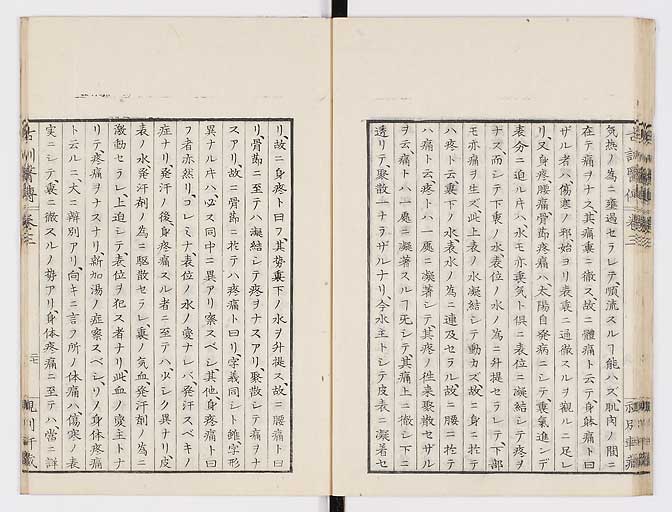 気熱ノ為ニ壅過セラレテ、順流スルヿ能ハズ、肌肉ノ間ニ
在テ痛ヲナス、其痛裏ニ徹ス、故ニ體痛ト云テ身躰痛ト曰
ザル者ハ、傷寒ノ邪始ヨリ表裏ニ通徹スルヲ観ルニ足レ
リ、又身疼、腰痛、骨節疼痛ハ、太陽自発病ニシテ、裏氣進ンデ
表分ニ迫ル片ハ水モ亦裏気ト倶ニ表位ニ凝結シテ疼ヲ
ナス、而シテ下裏ノ水、表位ノ水ノ為ニ升提セラレテ、下部
モ亦痛ヲ生ズ、此上表ノ水凝結シテ動カズ、故ニ身ニ於テ
ハ疼ト云、裏下ノ水、表水ノ為ニ連及セラル、故ニ腰ニ於テ
ハ痛ト云、疼トハ一處ニ凝著シテ、其疼ノ往来聚散セザル
ヲ云、痛トハ一處ニ凝著スルヿ旡シテ、其痛上ニ徹シ下ニ
透リテ、聚散一ナラザルナリ、今水主トシテ皮表ニ凝著セ
リ、故ニ身疼ト曰フ、其勢裏下ノ水ヲ升提ス、故ニ腰痛ト曰
リ、骨節ニ至テハ凝結シテ疼ヲナスアリ、聚散シテ痛ヲナ
スアリ、故ニ骨節ニ於テハ疼痛ト曰リ、字義同シト雖、字形
異ナル片ハ、必ス同中ニ異アリ、察スベシ、其他身疼痛ト曰
フ者亦然リ、コレミナ表位ノ水ノ変ナレバ発汗スベキノ
症ナリ、発汗ノ後、身疼痛スル者ニ至テハ、少シク異ナリ、皮
表ノ水発汗剤ノ為ニ駆散セラレ、裏ノ気血、発汗剤ノ為ニ
激動セラレ、上迫シテ表位ヲ犯ス者ナリ、此血ノ変主トナ
リテ、疼痛ヲナスナリ、新加湯ノ症察スベシ、リノ身体疼痛
ト云ルニ、大ニ辨別アリ、向キニ言フ所ノ体痛ハ、傷寒ノ表
実ニシテ、裏ニ徹スルノ勢アリ、身体疼痛ニ至テハ、當ニ詳